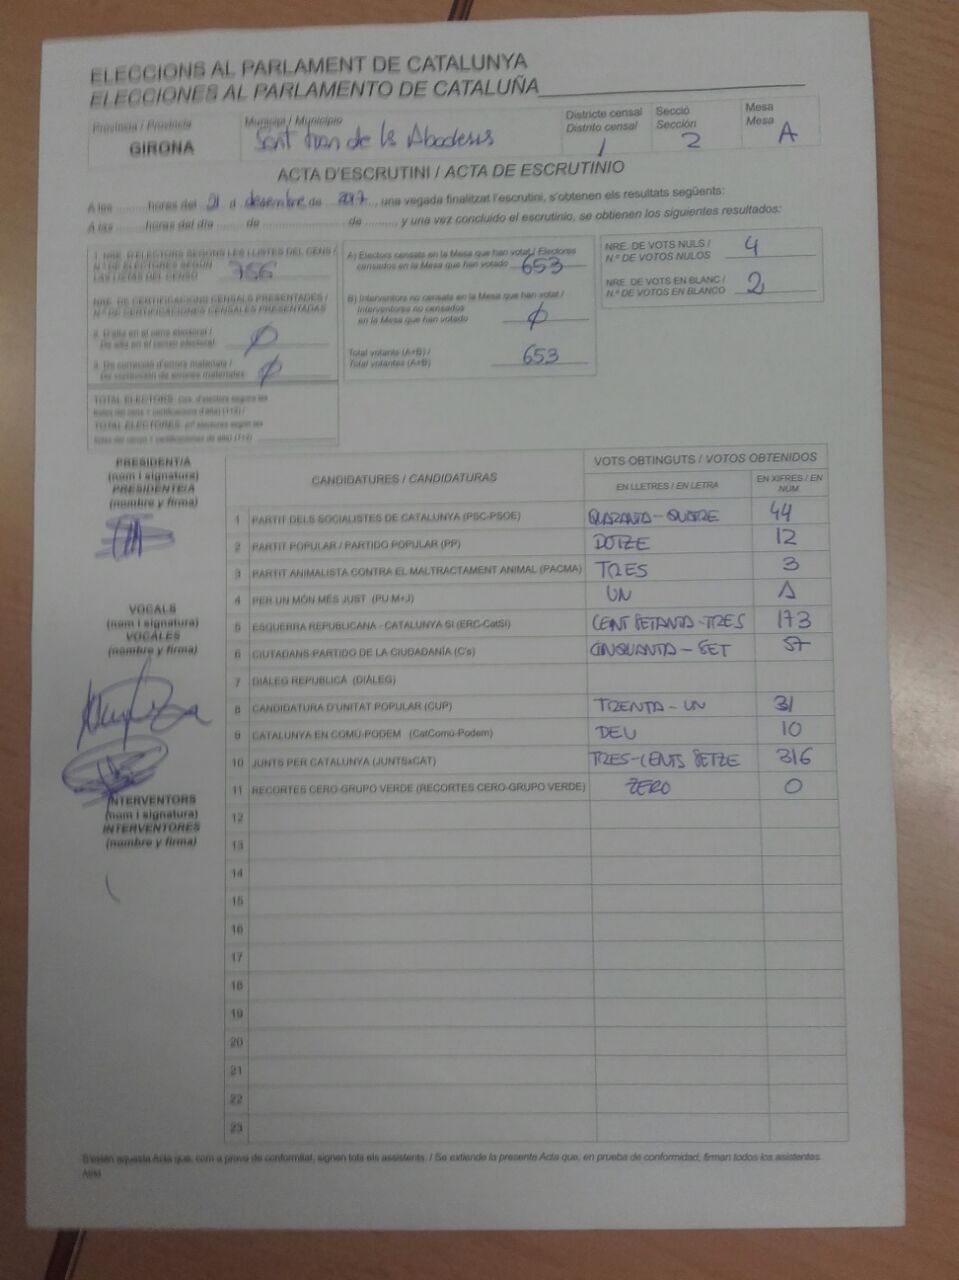 ELECCIONS AL PARLAMENT DE CATALUNYA
ELECCIONES AL PARLAMENTO DE CATALUÑA
Província / Provincia
GIRONA
Municipi / Municipio
Sant Joan de les Abadesses
Districte censal
Distrito censal
1
Secció
Sección
2
Mesa
Mesa
A
ACTA D'ESCRUTINI / ACTA DE ESCRUTINIO
A les ............ hores del 21 d desembre de 2017, una vegada finalitzat l'escrutini, s'obtenen els resultats següents:
A las ............ horas del día ............ de ............ de ............ y una vez concluido el escrutinio, se obtienen los siguientes resultados:
1 NRE. D'ELECTORS SEGONS LES LLISTES DEL CENS /
N.º DE ELECTORES SEGÚN
LAS LISTAS DEL CENSO 756
NRE. DE CERTIFICACIONS CENSALS PRESENTADES /
N.º DE CERTIFICACIONES CENSALES PRESENTADAS
2 D'alta en el cens electoral /
De alta en el censo electoral Ø
3 De correcció d'errors materials /
De corrección de errores materiales Ø
TOTAL ELECTORS
TOTAL ELECTORES
A) Electors censats en la Mesa que han votat / Electores
censados en la Mesa que han votado 653
B) Interventors no censats en la Mesa que han votat /
Interventores no censados
en la Mesa que han votado Ø
Total votants (A+B) /
Total votantes (A+B) 653
NRE. DE VOTS NULS /
N.º DE VOTOS NULOS 4
NRE. DE VOTS EN BLANC /
N.º DE VOTOS EN BLANCO 2
PRESIDENT/A
(nom i signatura)
PRESIDENTE/A
(nombre y firma)
VOCALS
(nom i signatura)
VOCALES
(nombre y firma)
INTERVENTORS
(nom i signatura)
INTERVENTORES
(nombre y firma)
CANDIDATURES / CANDIDATURAS
VOTS OBTINGUTS / VOTOS OBTENIDOS
EN LLETRES / EN LETRA
EN XIFRES / EN NÚM.
1 PARTIT DELS SOCIALISTES DE CATALUNYA (PSC-PSOE) QUARANTA-QUATRE 44
2 PARTIT POPULAR / PARTIDO POPULAR (PP) DOTZE 12
3 PARTIT ANIMALISTA CONTRA EL MALTRACTAMENT ANIMAL (PACMA) TRES 3
4 PER UN MÓN MÉS JUST (PUM+J) UN 1
5 ESQUERRA REPUBLICANA - CATALUNYA SÍ (ERC-CatSÍ) CENT SETANTA-TRES 173
6 CIUTADANS-PARTIDO DE LA CIUDADANÍA (C's) CINQUANTA-SET 57
7 DIÀLEG REPUBLICÀ (DIÀLEG)
8 CANDIDATURA D'UNITAT POPULAR (CUP) TRENTA-UN 31
9 CATALUNYA EN COMÚ-PODEM (CatComú-Podem) DEU 10
10 JUNTS PER CATALUNYA (JUNTSxCAT) TRES-CENTS SETZE 316
11 RECORTES CERO-GRUPO VERDE (RECORTES CERO-GRUPO VERDE) ZERO 0
12
13
14
15
16
17
18
19
20
21
22
23
S'estén aquesta Acta que, com a prova de conformitat, signen tots els assistents. / Se extiende la presente Acta que, en prueba de conformidad, firman todos los asistentes.